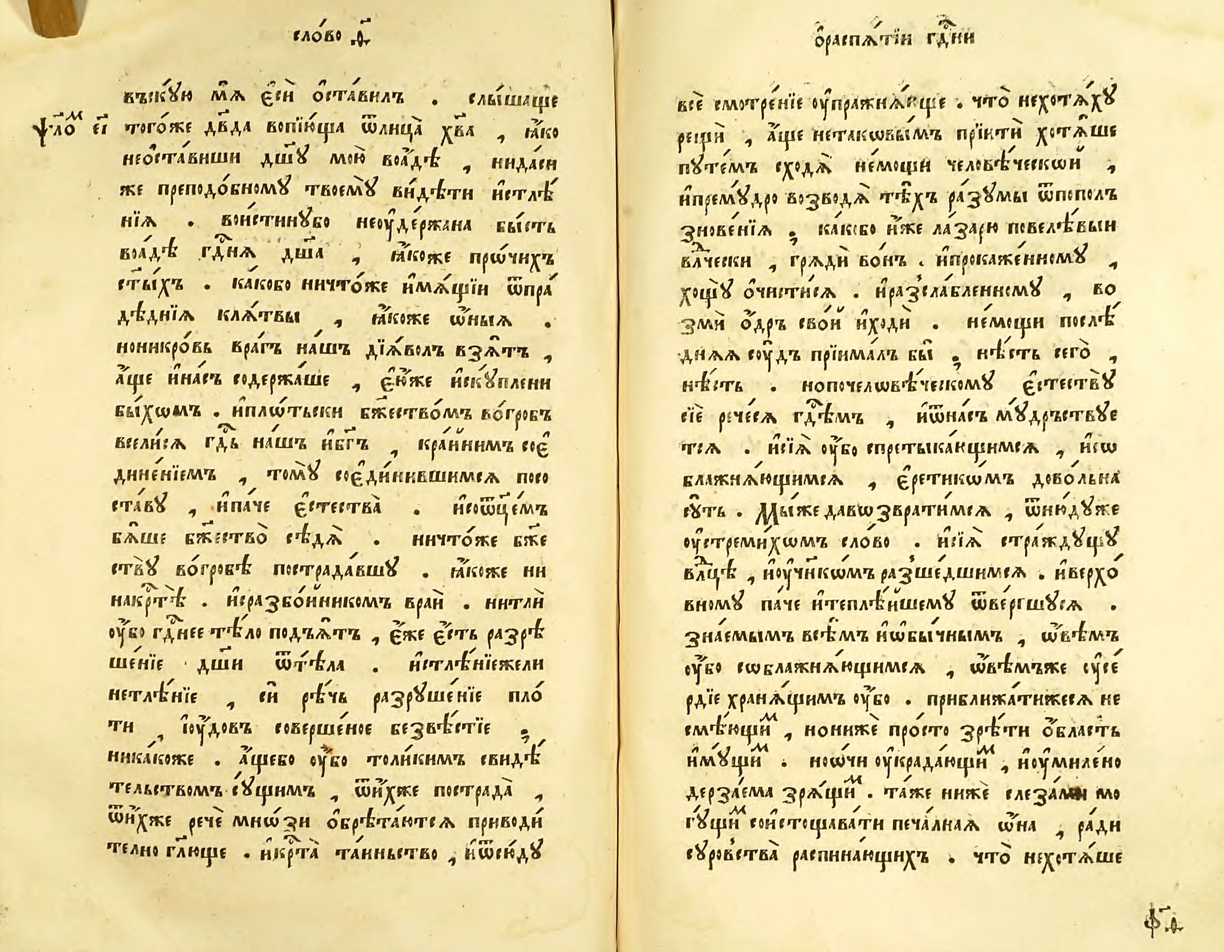 сло́во .д҃.
въскꙋ́ю мѧ̀ є҆сѝ ѡ҆ста́вилъ . слы́шаще
ѱⷧ҇о́мъ є҃і
того́же дв҃да вопїю́ща ѿлица̀ хв҃а , ꙗ҆́ко
неѡ҆ста́виши дш҃ꙋ мою̀ воа́дѣ , нида́си
же преподо́бномꙋ твоемꙋ̀ ви́дѣти и҆стлѣ́
нїѧ . вои́стинꙋбо неꙋ҆де́ржана бы́сть
воа́дѣ гдⷭ҇нѧ дш҃а , ꙗ҆́коже про́чихъ
ст҃ы́хъ . ка́кобо ничто́же и҆мѧ́щїи ѿпра́
дѣднїѧ клѧ́твы , ꙗ҆́коже ѻ҆ны́ѧ .
нони́кро́въ вра́гъ на́шъ дїѧ́волъ взѧ́тъ ,
а҆́ще и҆на́съ содержа́ше , є҆́юже и҆скꙋ́плени
бы́хѡмъ . и҆пло́тьски бж҃ество́мъ во́гробъ
всели́сѧ гдⷭ҇ь на́шъ и҆бг҃ъ , кра́йнимъ соє҆
дине́нїемъ , томꙋ̀ соє҆ди́нившимсѧ посо
ста́вꙋ , и҆па́че є҆стества̀ . и҆соѿце́мъ
бѧ́ше бж҃ество̀ сѣдѧ̀ . ничто́же бж҃е
ствꙋ̀ во́гробѣ пострада́вшꙋ . ꙗ҆́коже ни
накрⷭ҇тѣ̀ . и҆сразбо́йникомъ вра́й . нитлѝ
ᲂу҆́бо гдⷭ҇нее тѣ́ло под̾ѧ́тъ , є҆́же є҆́сть разрѣ
ше́нїе дш҃и ѿтѣ́ла . и҆стлѣ́нїежели
нетлѣ́нїе , сѝ рѣ́чь разрꙋше́нїе пло́
ти , і҆ꙋ́довъ соверше́ное безвѣ́стїе ;
ника́коже . а҆́щебо ᲂу҆́бо толи́кимъ свидѣ́
тельствомъ сꙋ́щимъ , ѿни́хже пострада̀ ,
ѿни́хже речѐ мно́зи ѡ҆брѣта́ютсѧ приводи́
телно гл҃юще . и҆крⷭ҇та̀ та́иньство , и҆ѿсю́дꙋ
ѡ҆распѧ́тїи гдⷭ҇ни
всѐ смотре́нїе ᲂу҆пражнѧ́юще . что̀ нехотѧ́хꙋ
рещѝ , а҆́ще нетаковы́мъ прїитѝ хотѧ́ше
пꙋте́мъ сходѧ̀ не́мощи человѣ́ческѡй ,
и҆премꙋ́дро возводѧ̀ тѣ́хъ ра́зꙋмы ѿпопол
знове́нїѧ ; ка́кѡбо и҆́же ла́зарю повелѣ́выи
влⷣчески , грѧдѝ во́нъ . и҆прокаже́нномꙋ ,
хощꙋ̀ ѡ҆чи́стисѧ . и҆разсла́бленномꙋ , во
змѝ ѻ҆́дръ сво́й и҆ходѝ . не́мощи послѣ́
днѧѧ сꙋ́дъ прїима́лъ бы̀ ; нѣ́сть сего̀ ,
нѣ́сть . нопочеловѣ́ческомꙋ є҆стествꙋ̀
сїѐ рече́сѧ гдⷭ҇емъ , и҆ѿна́съ мꙋ́дръствꙋе
тсѧ . и҆сїѧ̀ ᲂу҆́бо спретыка́ющимсѧ , и҆сѡ
блажнѧ́ющимсѧ , є҆ретикѡ́мъ дово́льна
сꙋ́ть . Мы́же давѡзврати́мсѧ , ѿню́дꙋже
ᲂу҆стреми́хомъ сло́во . и҆сїѧ̀ стра́ждꙋщꙋ
влⷣцѣ , и҆ᲂу҆чн҃икѡмъ разше́дшимсѧ . и҆верхо́
вномꙋ па́че и҆теплѣ́йшемꙋ ѿве́ргшꙋсѧ .
зна́емымъ всѣ́мъ и҆ѡ҆бы́чнымъ , ѻ҆вѣ́мъ
ᲂу҆́бо соблажнѧ́ющимсѧ , ѻ҆вѣ́мъже сꙋсе́
рдїе хранѧ́щимъ ᲂу҆́бо . приближа́тижесѧ не
смѣ́ющиⷨ , нонижѐ про́сто зрѣ́ти ѻ҆́бласть
и҆мꙋ́щиⷨ . ноѻ҆́чи ᲂу҆крада́ющиⷨ , и҆ᲂу҆миле́но
дерза́ема зрѧ́щиⷨ . та́же нижѐ слеза́ми мо
гꙋ́щиⷨ соистощава́ти печа́лнаѧ ѻ҆́на , ра́ди
сꙋ́ровства распина́ющихъ . что̀ нехотѧ́ше
ф҃.д҃.